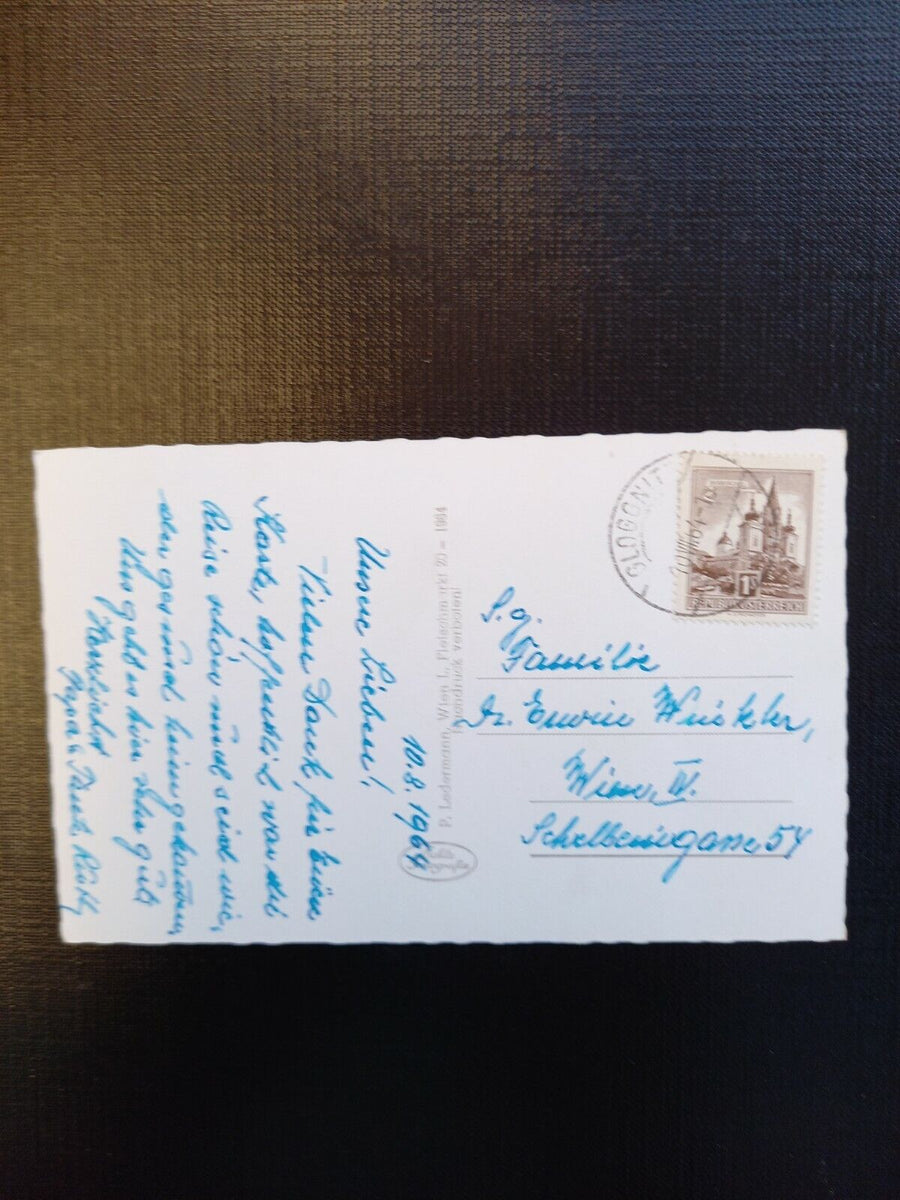 10.8.1964
Unsere Lieben!
Vielen Dank für Eure
Karte, hoffentlich war die
Reise schön und seid wie,
der gesund heimgekommen
Uns geht es hier sehr gut
Herzlichst
Papa u. Tante
P. Ledermann, Wien I., Fleischmarkt 20 – 1964
Nachdruck verboten!
GLOGGNIT
REPUBLIK ÖSTERREICH
1S
S.g.
Familie
Dr. Erwin Winkler,
Wien, IV.
Schelleingasse 54